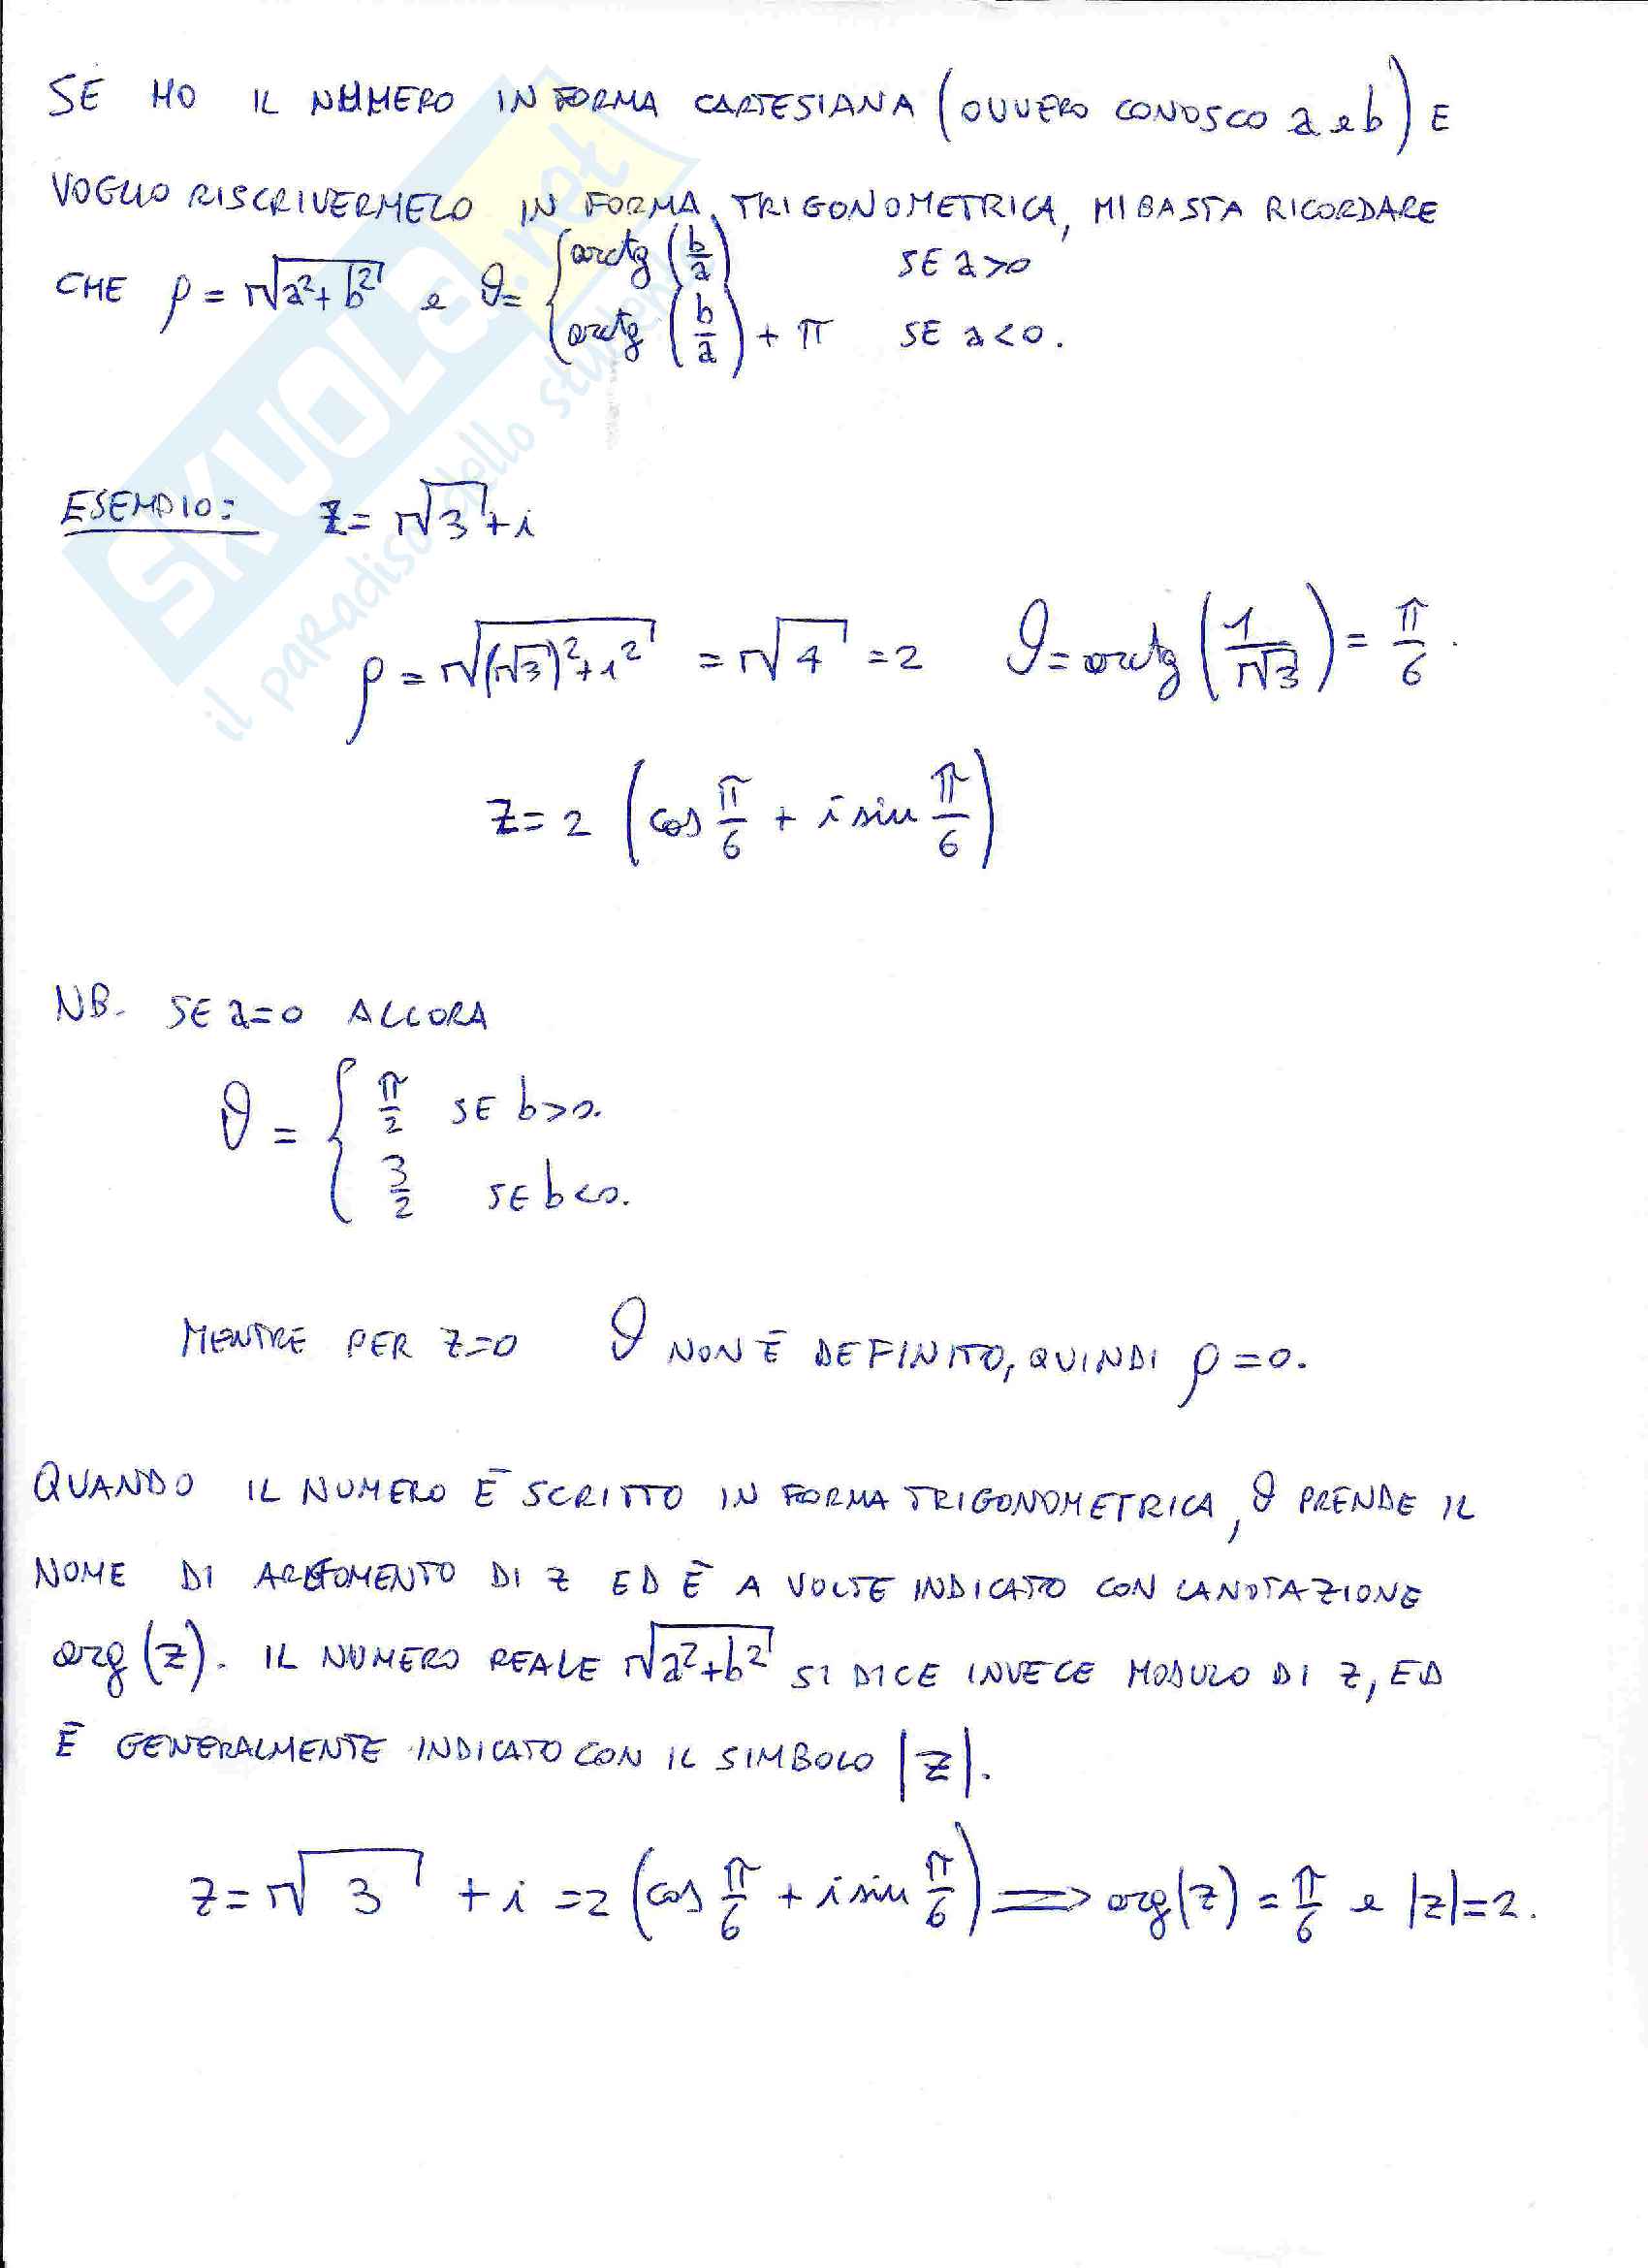 SE HO IL NUMERO IN FORMA CARTESIANA (OVVERO CONOSCO a e b) E
VOGLIO RISCRIVERMELO IN FORMA TRIGONOMETRICA, MI BASTA RICORDARE
CHE ρ = √(a²+b²) e ϑ = { arctg (b/a) SE a>0
arctg (b/a) + π SE a<0.
ESEMPIO: z = √3 + i
ρ = √((√3)²+1²) = √4 = 2 ϑ = arctg (1/√3) = π/6.
z = 2 (cos π/6 + i sin π/6)
NB. SE a=0 ALLORA
ϑ = { π/2 SE b>0.
3/2 SE b<0.
MENTRE PER z=0 ϑ NON È DEFINITO, QUINDI ρ=0.
QUANDO IL NUMERO È SCRITTO IN FORMA TRIGONOMETRICA, ϑ PRENDE IL
NOME DI ARGOMENTO DI z ED È A VOLTE INDICATO CON LA NOTAZIONE
arg (z). IL NUMERO REALE √(a²+b²) SI DICE INVECE MODULO DI z, ED
È GENERALMENTE INDICATO CON IL SIMBOLO |z|.
z = √3 + i = 2 (cos π/6 + i sin π/6) ⟹ arg(z) = π/6 e |z|=2.
SKUOLA.net
il paradiso dello studente